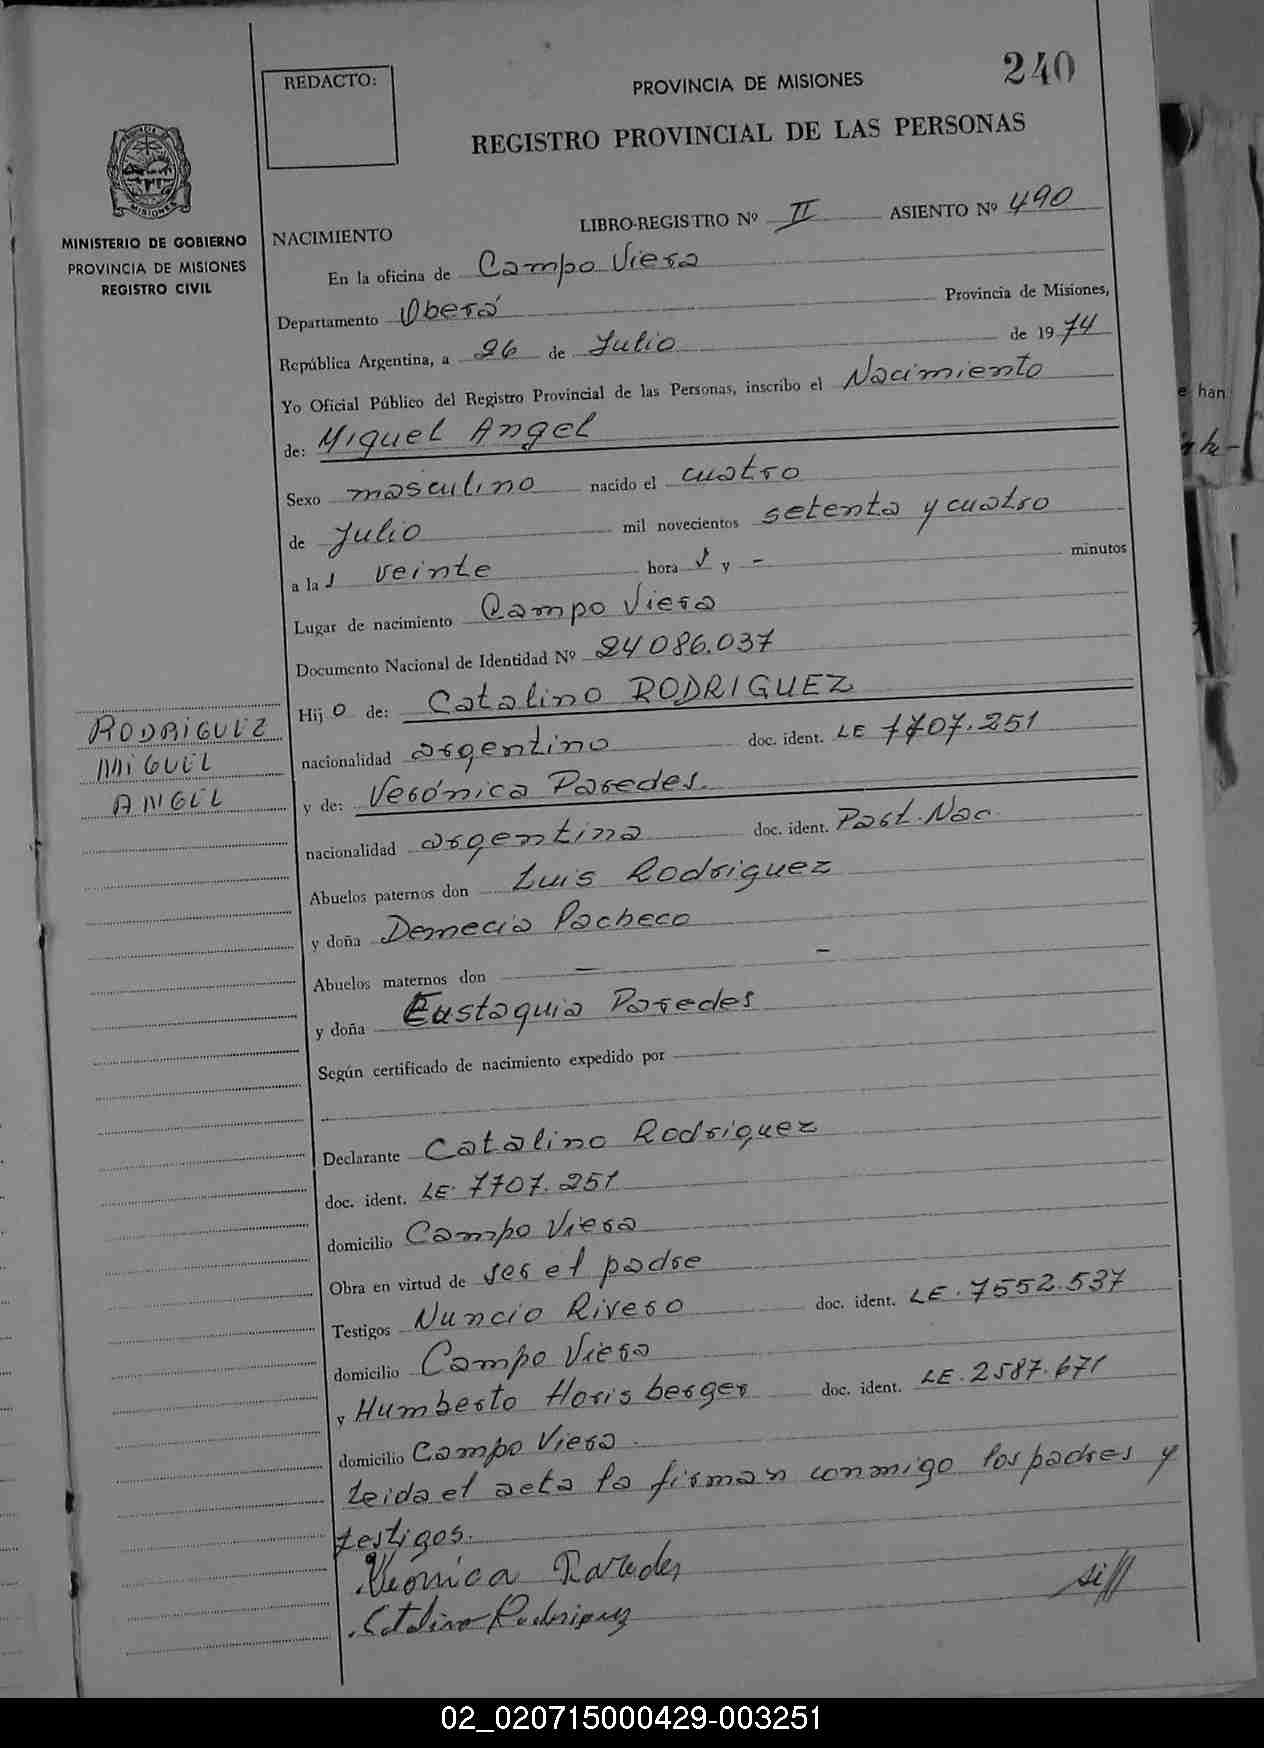 240
REDACTO:
PROVINCIA DE MISIONES
REGISTRO PROVINCIAL DE LAS PERSONAS
MINISTERIO DE GOBIERNO
PROVINCIA DE MISIONES
REGISTRO CIVIL
NACIMIENTO
LIBRO-REGISTRO Nº II ASIENTO Nº 490
En la oficina de Campo Viera
Departamento Oberá Provincia de Misiones,
República Argentina, a 26 de Julio de 1974
Yo Oficial Público del Registro Provincial de las Personas, inscribo el Nacimiento
de: Miguel Angel
Sexo masculino nacido el cuatro
de Julio mil novecientos setenta y cuatro
a las veinte hora s y - minutos
Lugar de nacimiento Campo Viera
Documento Nacional de Identidad Nº 24086.037
Hijo de: Catalino RODRIGUEZ
RODRIGUEZ
MIGUEL
ANGEL
nacionalidad argentino doc. ident. LE 7707.251
y de: Verónica Paredes.
nacionalidad argentina doc. ident. Part. Nac.
Abuelos paternos don Luis Rodriguez
y doña Demecia Pacheco
Abuelos maternos don — —
y doña Eustaquia Paredes
Según certificado de nacimiento expedido por
Declarante Catalino Rodriguez
doc. ident. LE. 7707.251
domicilio Campo Viera
Obra en virtud de ser el padre
Testigos Nuncio Rivero doc. ident. LE. 7552.537
domicilio Campo Viera
y Humberto Horisberger doc. ident. LE. 2587.671
domicilio Campo Viera.
Leida el acta la firman conmigo los padres y
testigos.
Veronica Paredes
Catalino Rodriguez
e han
02_020715000429-003251